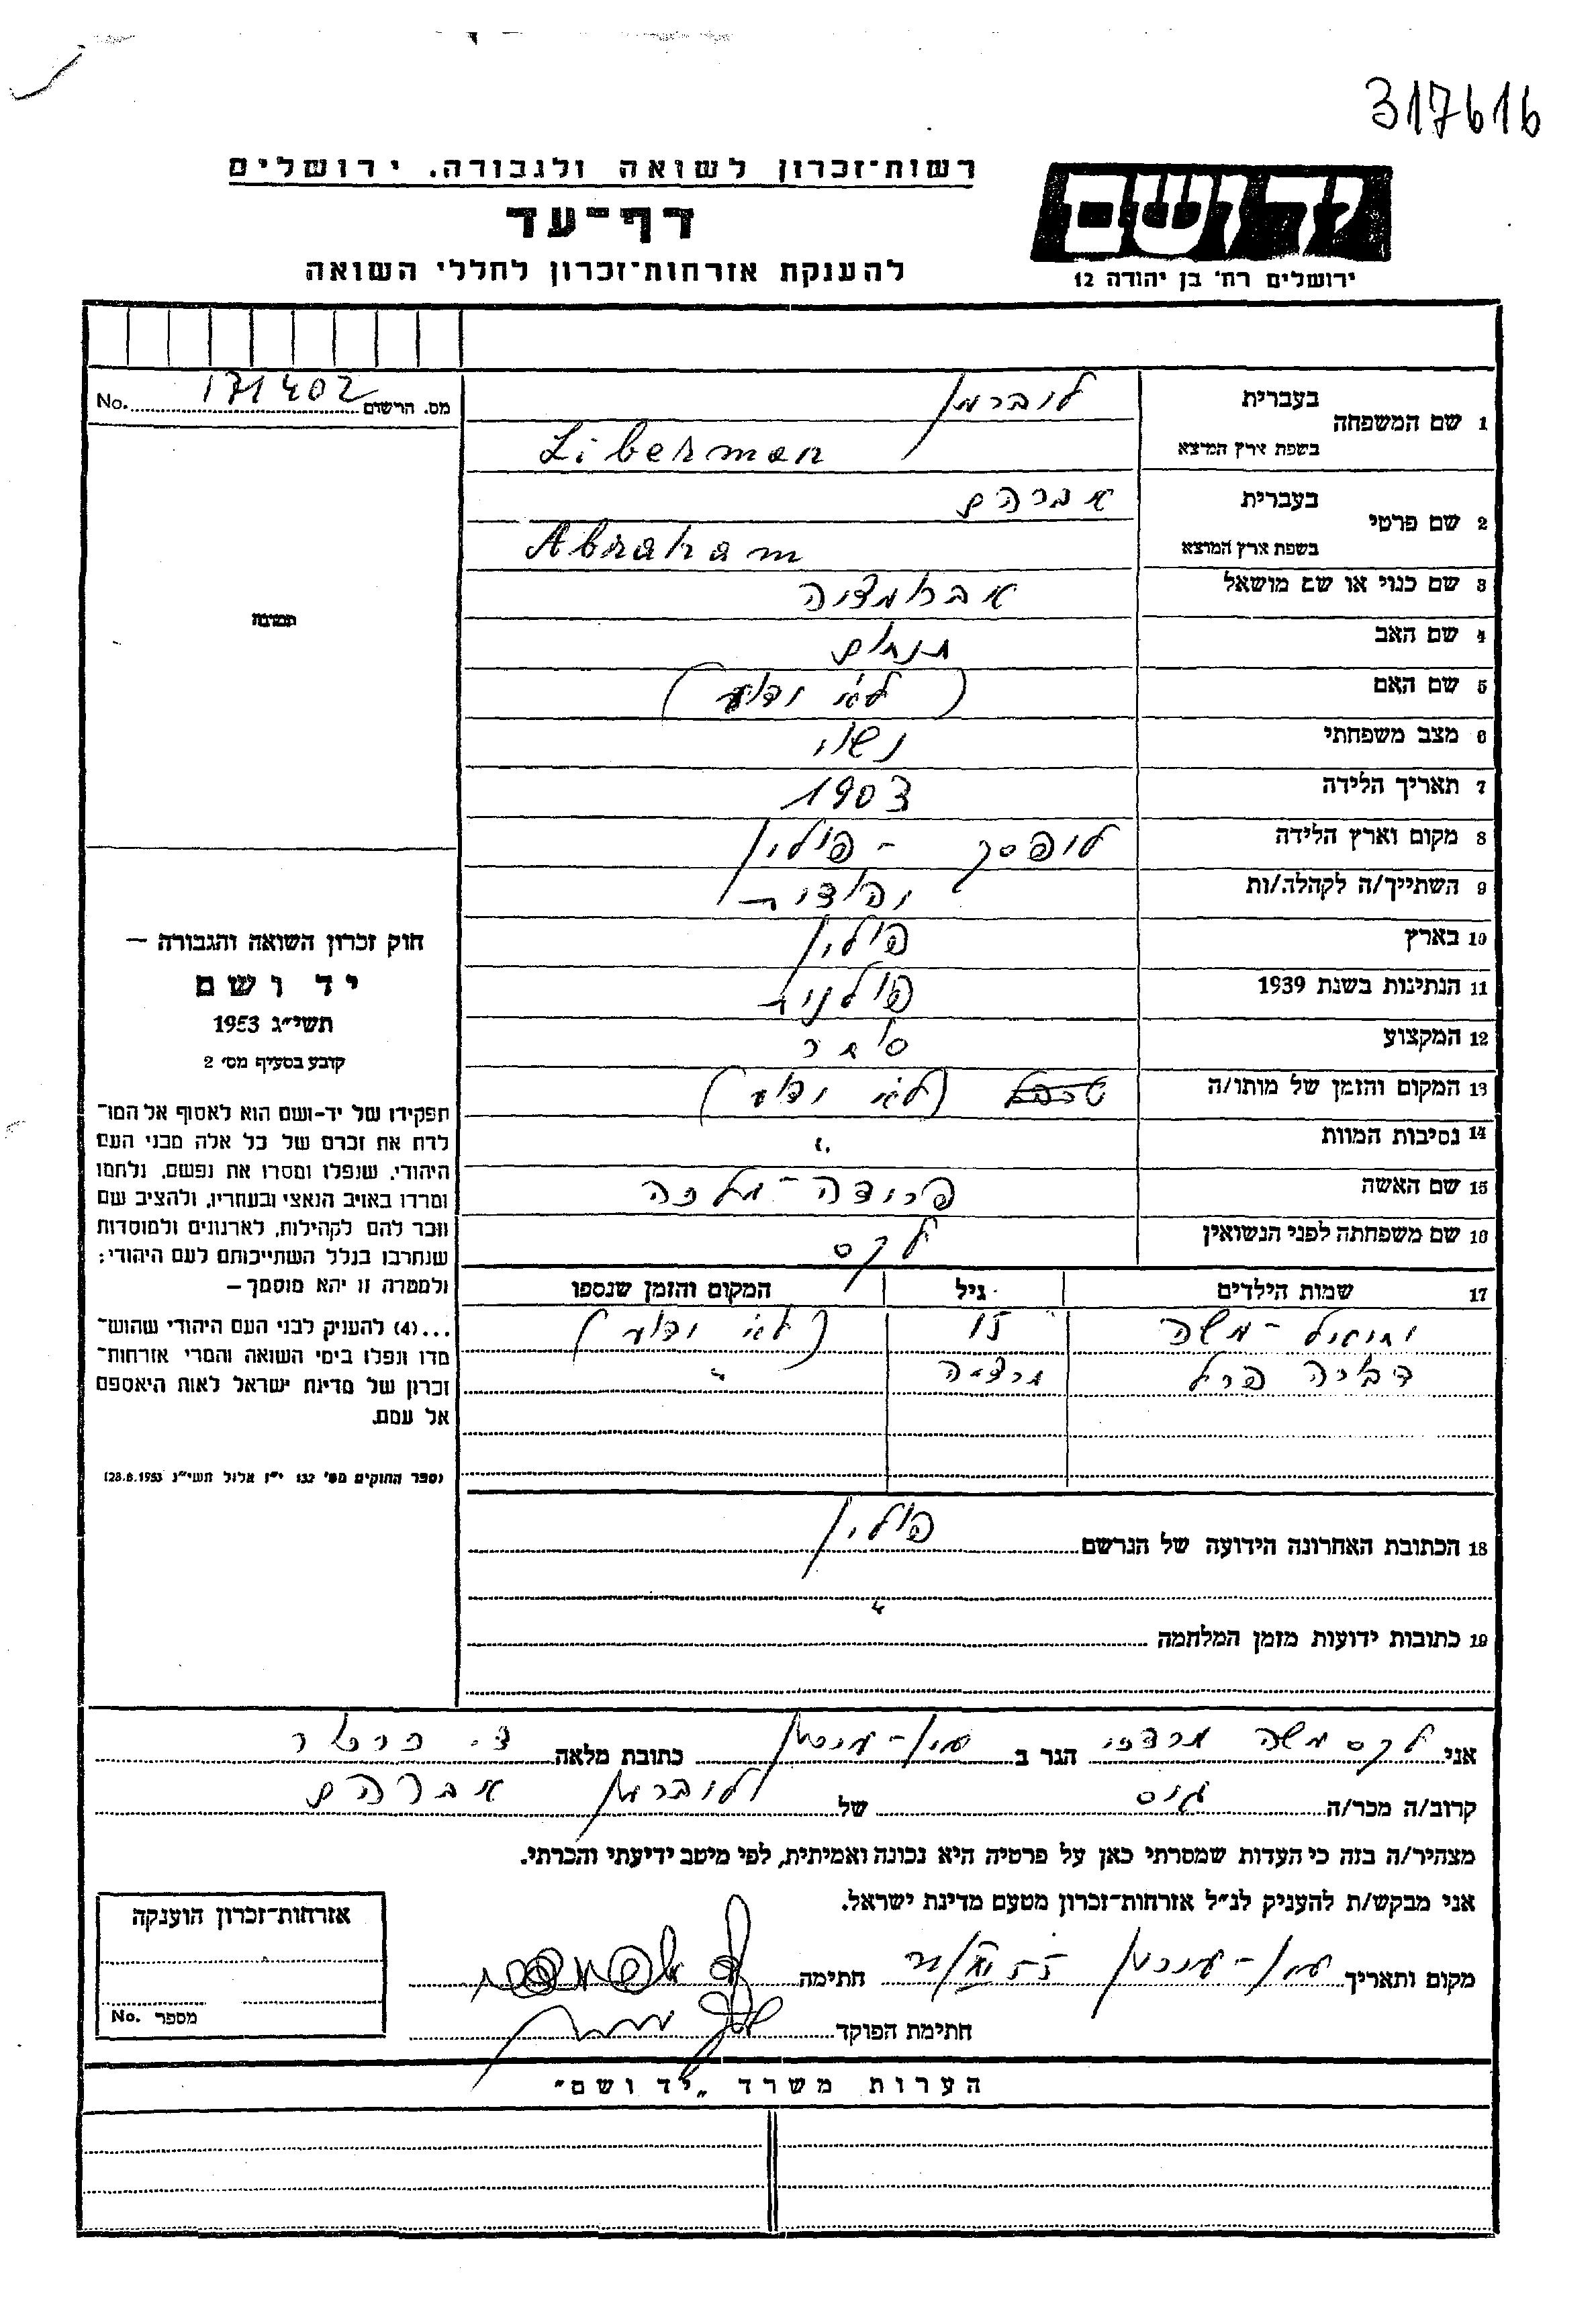 317616
רשות־זכרון לשואה ולגבורה. ירושלים
יד ושם
דף־עד
ירושלים רח׳ בן יהודה 12
להענקת אזרחות־זכרון לחללי השואה
מס. הרשום 171402 No.
1 שם המשפחה בעברית ליברמן
בשפת ארץ המוצא Liberman
2 שם פרטי בעברית אברהם
בשפת ארץ המוצא Abraham
3 שם כנוי או שם מושאל
4 שם האב תנחום
5 שם האם (לא ידוע)
6 מצב משפחתי נשוי
7 תאריך הלידה 1903
8 מקום וארץ הלידה ליפסק – פולין
9 השתייך/ה לקהלה/ות יהודית
10 בארץ פולין
11 הנתינות בשנת 1939 פולנית
12 המקצוע סוחר
13 המקום והזמן של מותו/ה (לא ידוע)
14 נסיבות המוות "
15 שם האשה פרידה – מלכה
16 שם משפחתה לפני הנשואין לקס
תמונה
חוק זכרון השואה והגבורה –
יד ושם
תשי״ג 1953
קובע בסעיף מס׳ 2
תפקידו של יד-ושם הוא לאסוף אל המו־
לדת את זכרם של כל אלה מבני העם
היהודי, שנפלו ומסרו את נפשם, נלחמו
ומרדו באויב הנאצי ובעוזריו, ולהציב שם
וזכר להם לקהילות, לארגונים ולמוסדות
שנחרבו בגלל השתייכותם לעם היהודי;
ולמטרה זו יהא מוסמך –
...(4) להעניק לבני העם היהודי שהוש־
מדו ונפלו בימי השואה והמרי אזרחות־
זכרון של מדינת ישראל לאות היאספם
אל עמם.
(ספר החוקים מס׳ 132 י״ז אלול תשי״ג 28.8.1953)
17 שמות הילדים גיל המקום והזמן שנספו
יחיאל – משה 15 (לא ידוע)
דבורה פרל "
18 הכתובת האחרונה הידועה של הנרשם פולין
"
19 כתובות ידועות מזמן המלחמה
אני לקס משה מרדכי הגר ב כתובת מלאה
קרוב/ה מכר/ה גיס של ליברמן אברהם
מצהיר/ה בזה כי העדות שמסרתי כאן על פרטיה היא נכונה ואמיתית, לפי מיטב ידיעתי והכרתי.
אני מבקש/ת להעניק לנ״ל אזרחות־זכרון מטעם מדינת ישראל.
מקום ותאריך חתימה
חתימת הפוקד
אזרחות־זכרון הוענקה
מספר No.
הערות משרד „יד ושם"